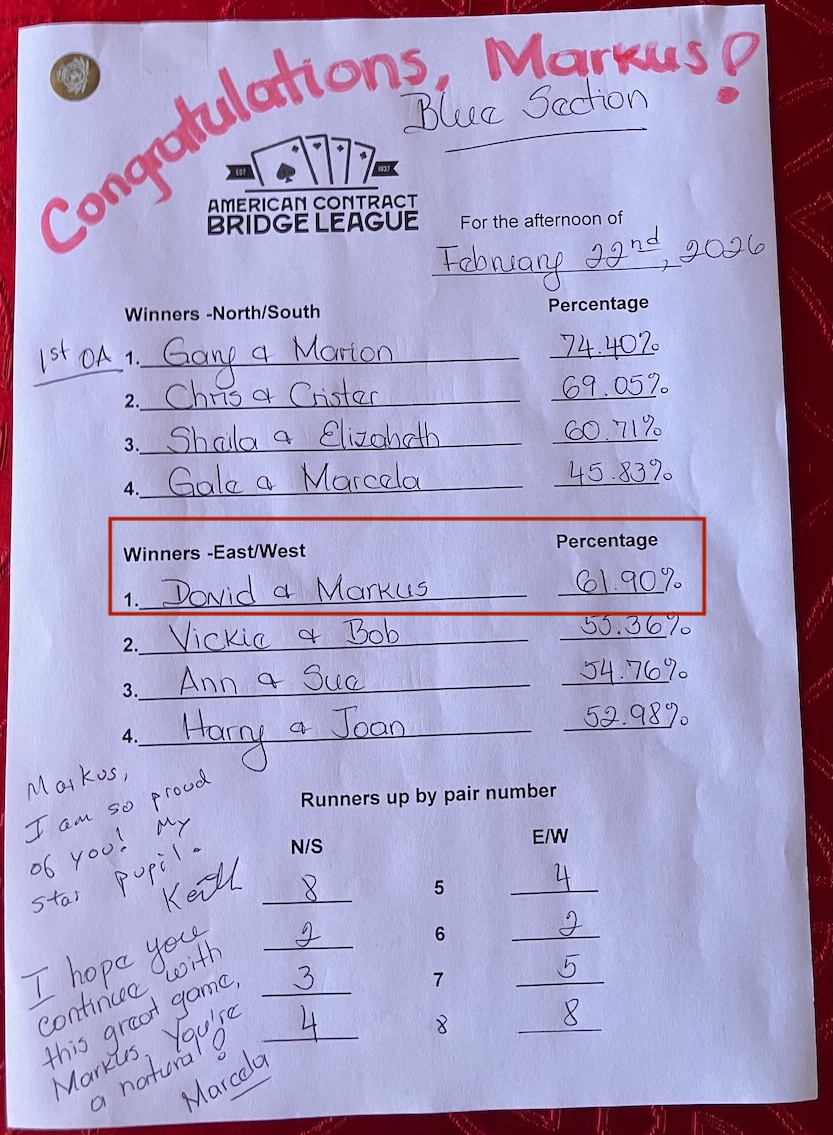 Congratulations, Markus!
Blue Section
EST 1937
AMERICAN CONTRACT
BRIDGE LEAGUE
For the afternoon of
February 22nd, 2026
Winners -North/South Percentage
1st OA 1. Gary & Marion 74.40%
2. Chris & Crister 69.05%
3. Sheila & Elizabeth 60.71%
4. Gale & Marcela 45.83%
Winners -East/West Percentage
1. David & Markus 61.90%
2. Vickie & Bob 55.36%
3. Ann & Sue 54.76%
4. Harry & Joan 52.98%
Markus,
I am so proud
of you! My
star pupil.
Keith
I hope you
continue with
this great game,
Markus. You're
a natural!
Marcela
Runners up by pair number
N/S E/W
8 5 4
2 6 2
3 7 5
4 8 8